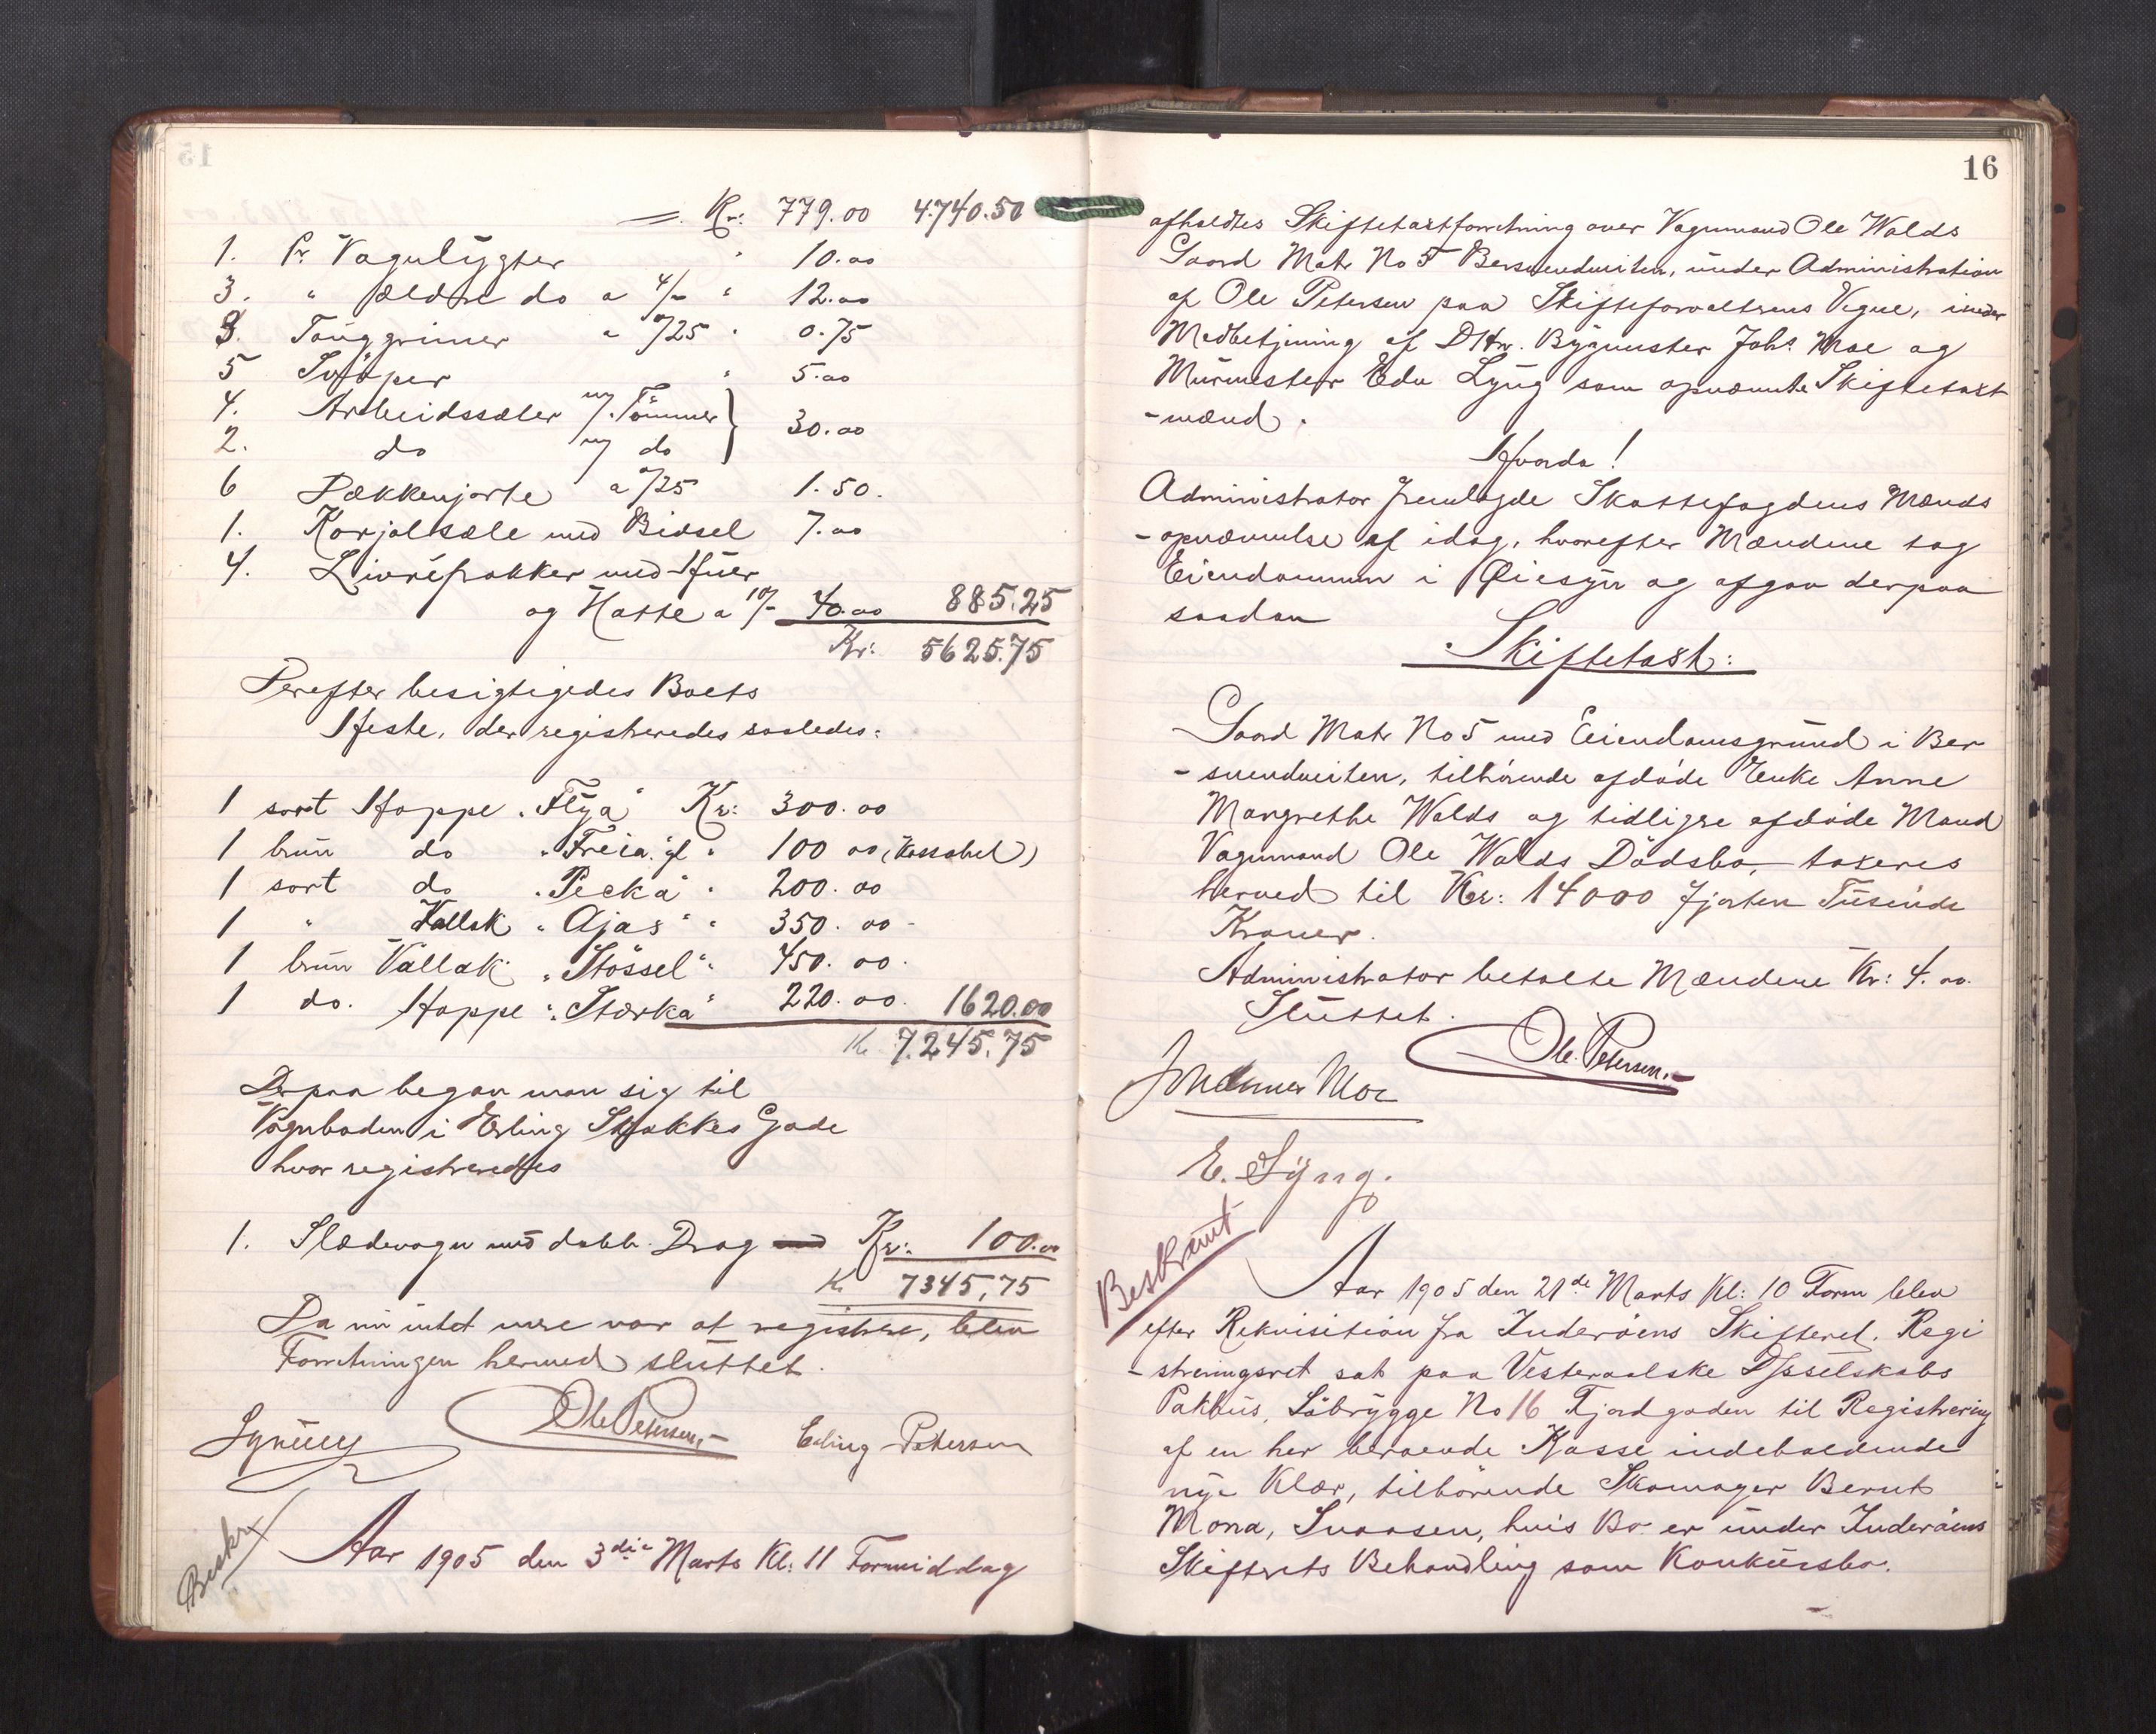 = Kr: 779.00 4.740.50
1. Pr Vognlygter " 10.00
3. " ældre do a 4/- " 12.00
3. Tauggrimer a /25 " 0.75
5 Svöper " 5.00
4. Arbeidssæler m/ Tömmer
2. do m/ do } 30.00
6 Dækkenjorte a /25 1.50.
1. Karjolsæle med Bidsel 7.00
4. Livréfrakker med Huer
og Hatte a 10/- 40.00 885.25
Kr: 5625.75
Derefter besigtigedes Boets
Heste, der registreredes saaledes:
1 sort Hoppe "Flya" Kr: 300.00
1 brun do "Freia" gl " 100 00 (Kassabel)
1 sort do "Pecka" " 200.00
1 " Vallak "Ajas" " 350.00 -
1 brun Vallak "Stössel" " 450.00.
1 do. Hoppe "Stærka" 220.00. 1620.00
Kr 7.245.75
Derpaa begav man sig til
Vognboden i Erling Skakkes Gade
hvor registreredes
1. Slædevogn med dobb. Drag Kr: 100.00
Kr 7345,75
Da nu intet mere var at registrere, blev
Forretningen hermed sluttet.
Ole Petersen. Erling Petersen
Beskr
Aar 1905 den 3die Marts Kl: 11 Formiddag
16
afholdtes Skiftetaxtforretning over Vognmand Ole Walds
Gaard Matr No 5 Bersvendveiten, under Administration
af Ole Petersen paa Skifteforvalterens Vegne, under
Medbetjening af DHrr. Bygmester Johs Moe og
Murmester Edv Lyng som opnævnte Skiftetaxt
-mænd.
Hvorda!
Administrator fremlagde Skattefogdens Mænds
-opnævnelse af idag, hvorefter Mændene tog
Eiendommen i Øiesyn og afgav derpaa
saadan
Skiftetaxt:
Gaard Matr No 5 med Eiendomsgrund i Ber
-svendveiten, tilhörende afdöde Enke Anne
Margrethe Walds og tidligere afdöde Mand
Vognmand Ole Walds Dödsbo, taxeres
herved til Kr: 14000 fjorten Tusinde
Kroner.
Administrator betalte Mændene Kr: 4.00.
Sluttet.
Ole Petersen.
Johannes Moe
E. Lyng.
Beskrevet
Aar 1905 den 21de Marts Kl: 10 Form blev
efter Rekvisition fra Inderöens Skifteret. Regi
-streringsret sat paa Vesteraalske D/sselskabs
Pakhus, Söbrygge No 16 Fjordgaden til Registrering
af en her beroende Kasse indeholdende
nye Klær, tilhörende Skomager Bernt
Mona, Snaasen, hvis Bo er under Inderöens
Skifterets Behandling som Konkursbo.